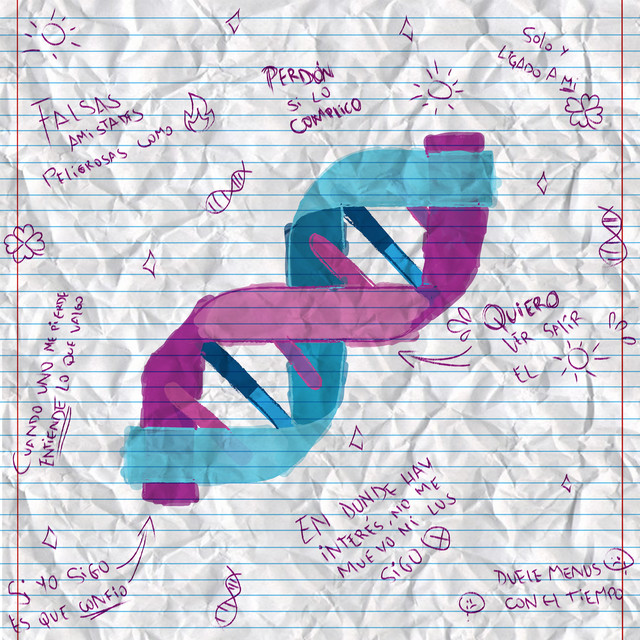 Solo y
ligado a mi
PERDÓN
si lo
complico
FALSAS
AMISTADES
Peligrosas como
CUANDO UNO ME PIERDE
ENTIENDE LO QUE VALGO
QUIERO
VER SALIR
EL
EN DONDE HAY
INTERÉS, NO ME
MUEVO NI LOS
SIGO
Si YO SIGO
ES QUE CONFIO
DUELE MENOS
CON EL TIEMPO